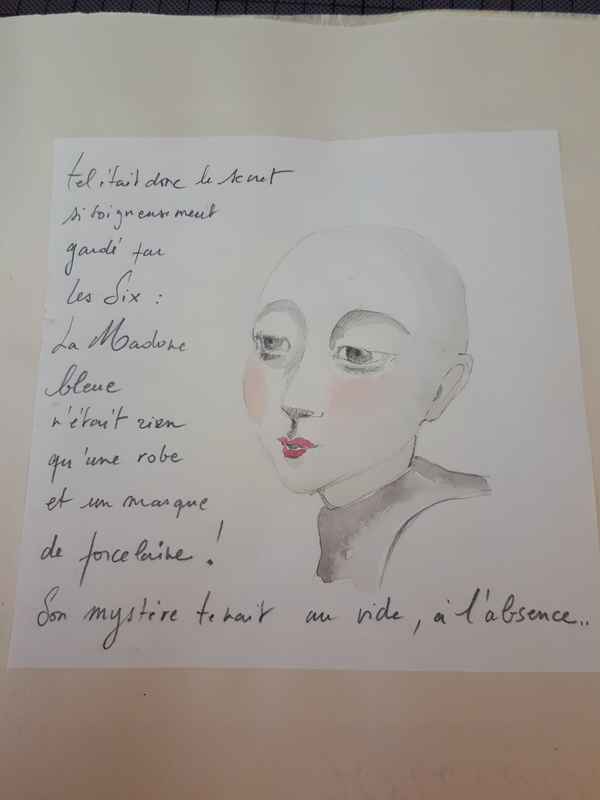 tel était donc le secret
si soigneusement
gardé par
les Six :
La Madone
bleue
n'était rien
qu'une robe
et un masque
de porcelaine !
Son mystère tenait au vide, à l'absence..